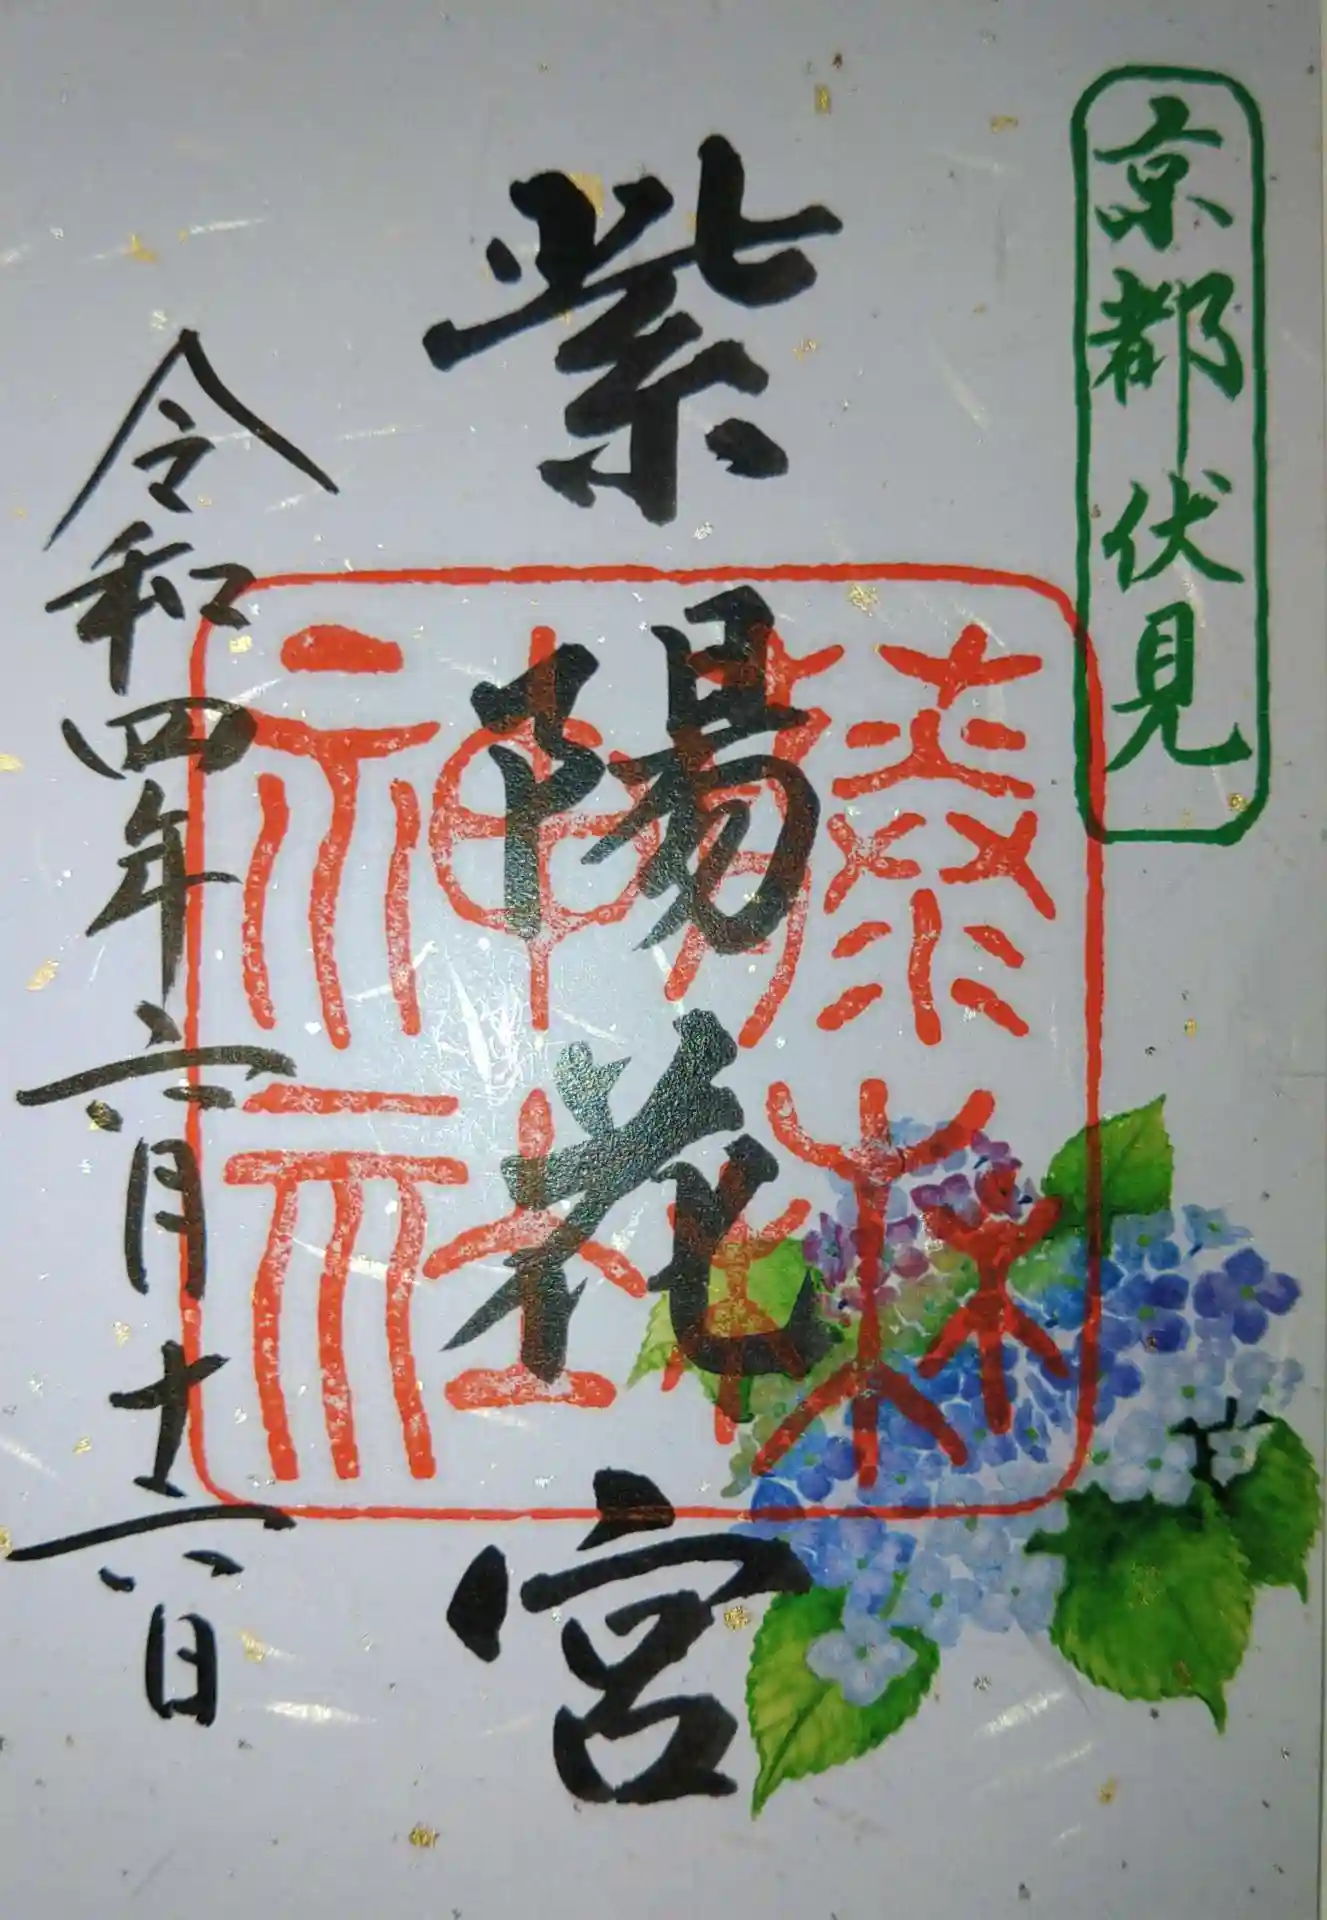 京都伏見
紫陽花宮
藤森
神社
令和四年六月十六日